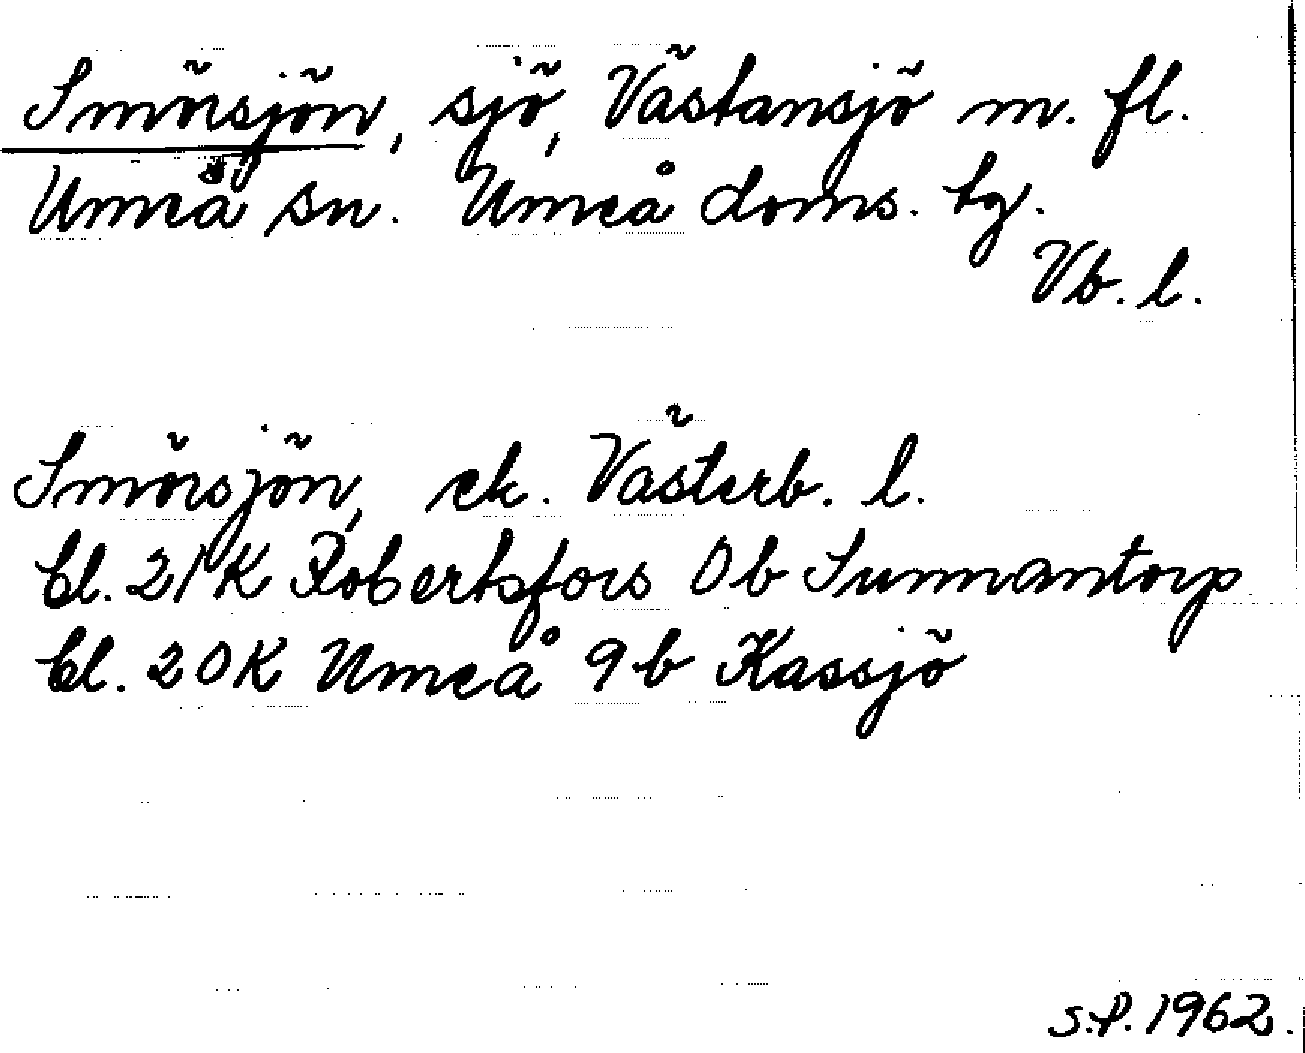 Smörsjön, sjö, Västansjö m. fl.
Umeå sn. Umeå doms. tg.
Vb. l.
Smörsjön, ek. Västerb. l.
bl. 21K Robertsfors 0b Sunnantorp
bl. 20K Umeå 9b Kassjö
S.P. 1962.